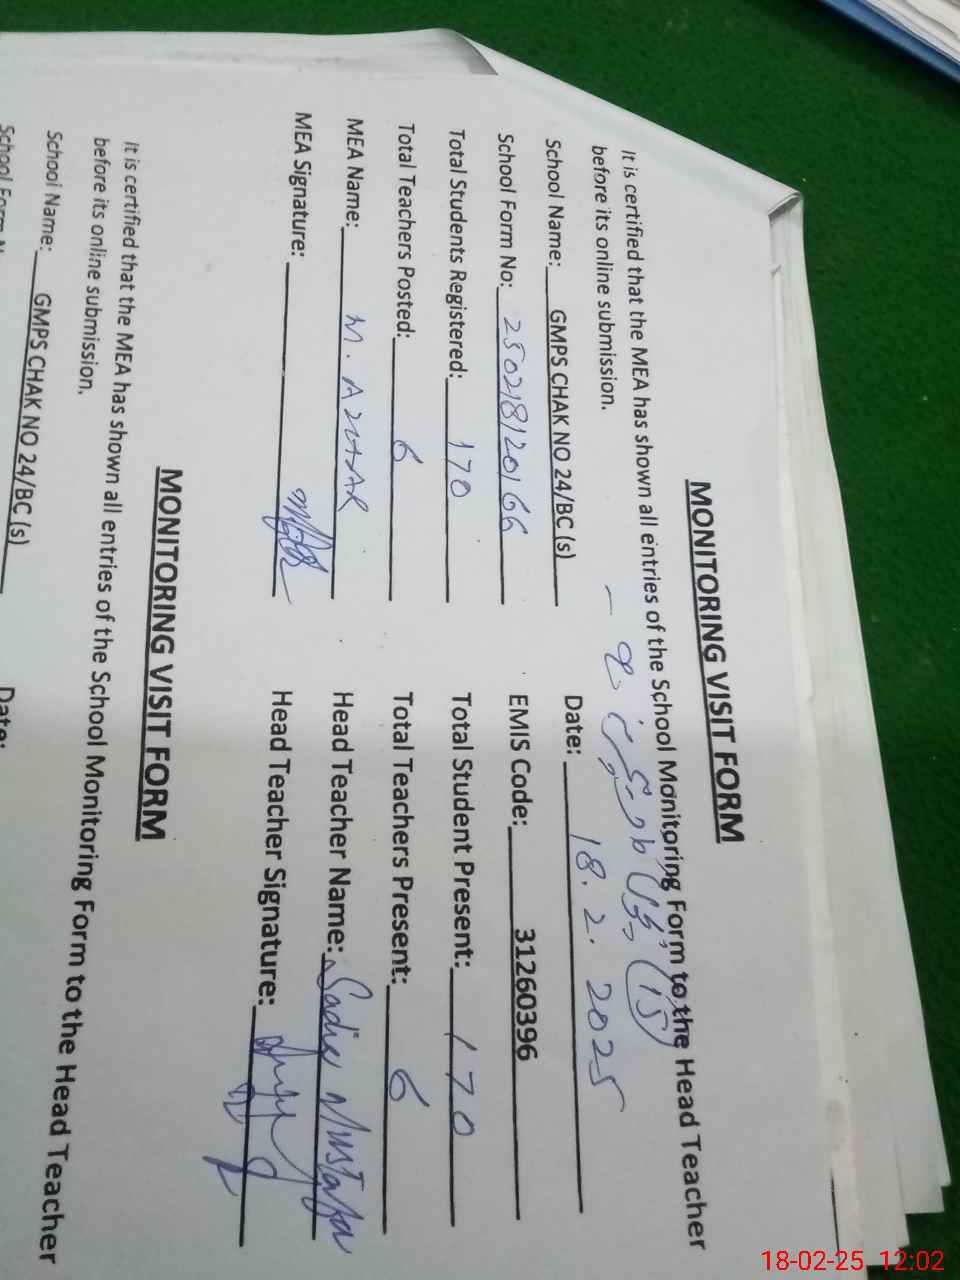 MONITORING VISIT FORM
It is certified that the MEA has shown all entries of the School Monitoring Form to the Head Teacher
before its online submission.
(15)
School Name: GMPS CHAK NO 24/BC (s) Date: 18.2.2025
School Form No: 250218120166 EMIS Code: 31260396
Total Students Registered: 170 Total Student Present: 170
Total Teachers Posted: 6 Total Teachers Present: 6
MEA Name: M. AZHAR Head Teacher Name: Sadia Mustafa
MEA Signature: Head Teacher Signature:
MONITORING VISIT FORM
It is certified that the MEA has shown all entries of the School Monitoring Form to the Head Teacher
before its online submission.
School Name: GMPS CHAK NO 24/BC (s) Date:
School Form N
18-02-25 12:02